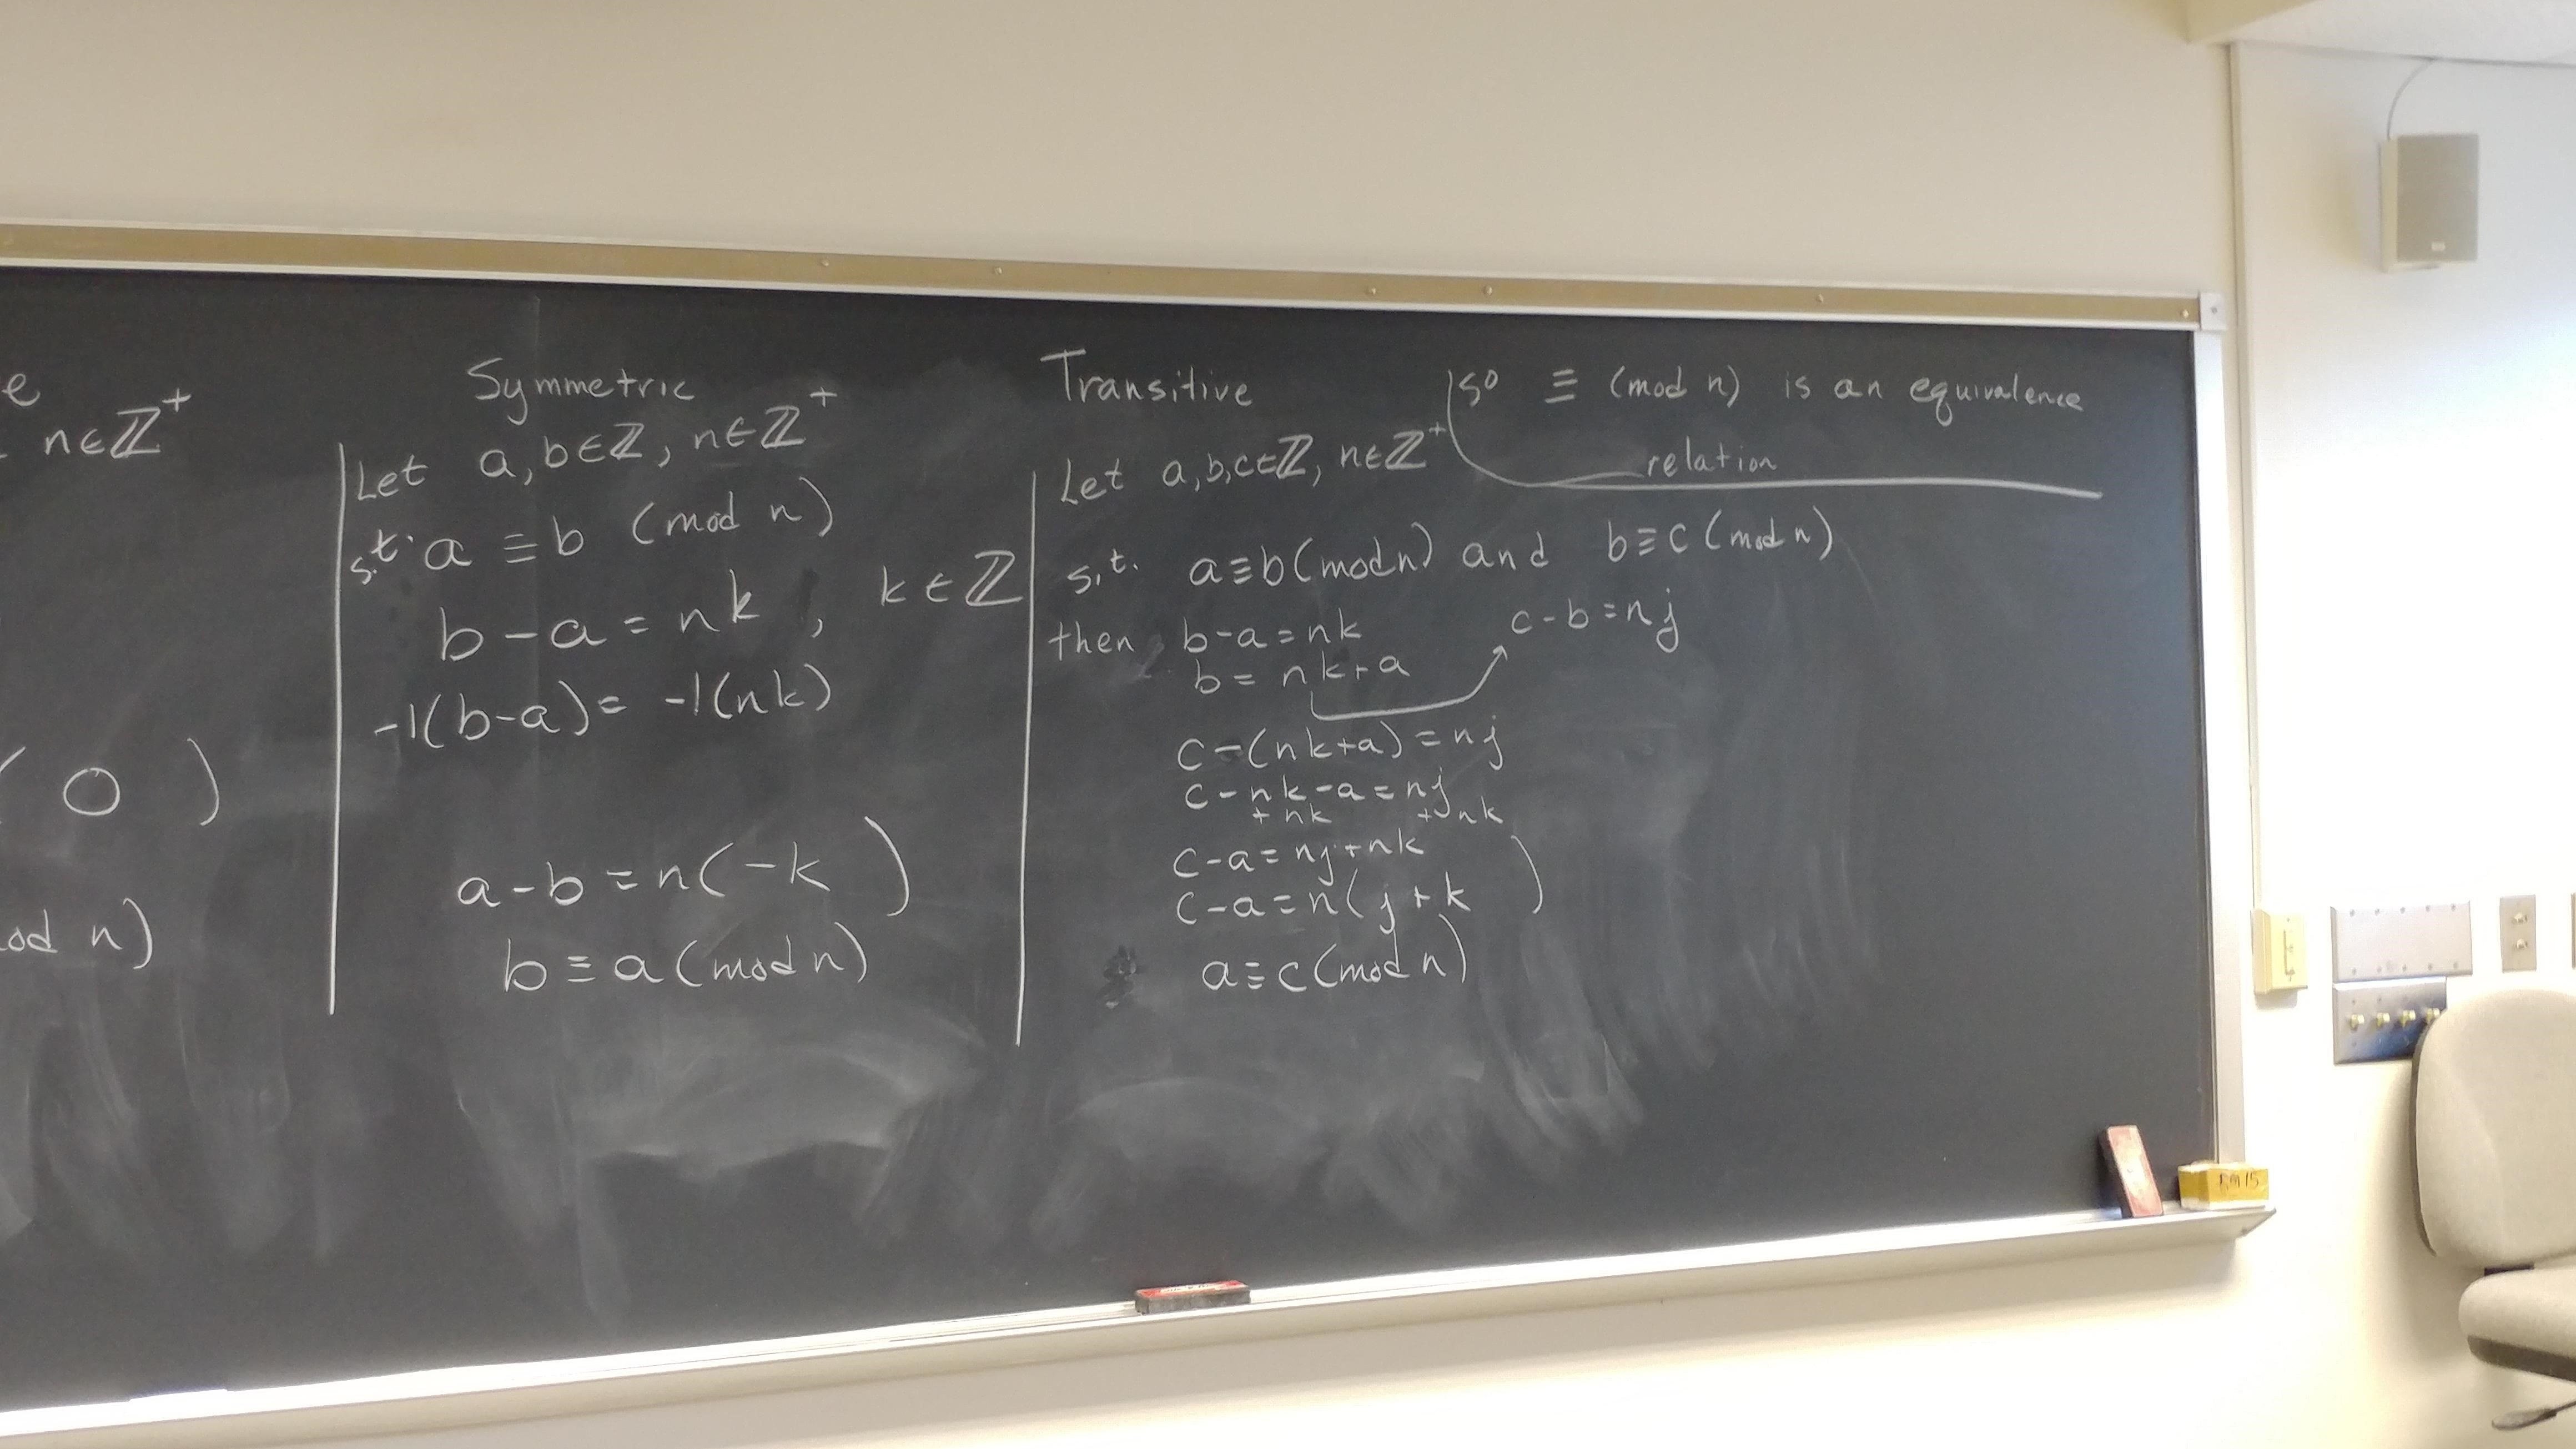 e
n∈ℤ⁺
( 0 )
od n)
Symmetric
Let a,b∈ℤ, n∈ℤ⁺
s.t. a ≡ b (mod n)
b-a = nk , k∈ℤ
-1(b-a) = -1(nk)
a-b = n(-k )
b ≡ a (mod n)
Transitive
Let a,b,c∈ℤ, n∈ℤ⁺
s.t. a≡b(mod n) and b≡c(mod n)
then b-a = nk c-b = nj
b = nk+a
c-(nk+a) = nj
c-nk-a = nj
+nk +nk
c-a = nj+nk
c-a = n(j+k )
a≡c(mod n)
so ≡ (mod n) is an equivalence
relation
RM 15